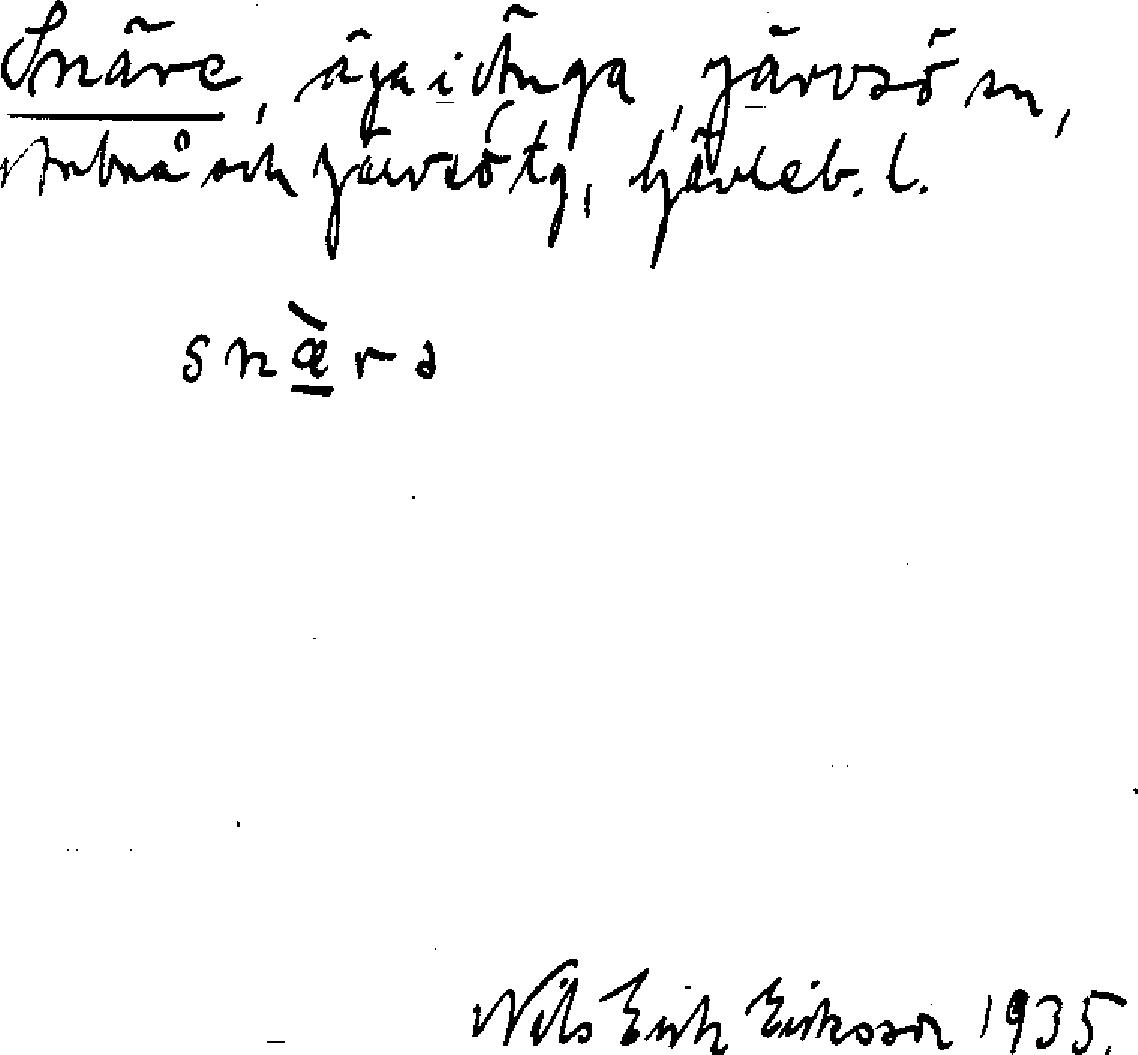 Snäre, äga i Änga, Järvsö sn,
Arbrå och Järvsö tg, Gävleb. l.
snæ̀rə
Nils Erik Eriksson 1935.